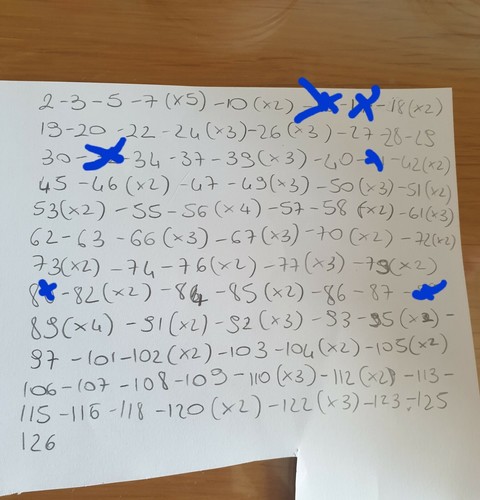 2-3-5-7(x5)-10(x2)- -18(x2)
19-20-22-24(x3)-26(x3)-27-28-29
30- -34-37-39(x3)-40- -42(x2)
45-46(x2)-47-49(x3)-50(x3)-51(x2)
53(x2)-55-56(x4)-57-58(x2)-61(x3)
62-63-66(x3)-67(x3)-70(x2)-72(x2)
73(x2)-74-76(x2)-77(x3)-79(x2)
-82(x2)-84-85(x2)-86-87-
89(x4)-91(x2)-92(x3)-93-95(x2)-
97-101-102(x2)-103-104(x2)-105(x2)
106-107-108-109-110(x3)-112(x2)-113-
115-116-118-120(x2)-122(x3)-123-125
126